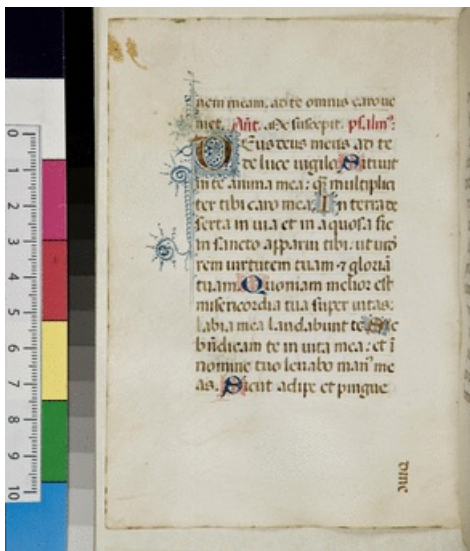 nem meam, ad te omnis caro ue
niet. Ant. Me suscepit. psalm⁹:
Deus deus meus ad te
de luce uigilo. Sitiuit
in te anima mea: q̃ multiplici
ter tibi caro mea. In terra de
serta in uia et in aquosa sic
in sancto apparui tibi: ut uidẽ
rem uirtutem tuam ⁊ gloriã
tuam. Quoniam melior est
misericordia tua super uitas:
labia mea laudabunt te. Sic
bñdicam te in uita mea: et ĩ
nomine tuo leuabo man⁹ me
as. Sicut adipe et pingue
0 1 2 3 4 5 6 7 8 9 10